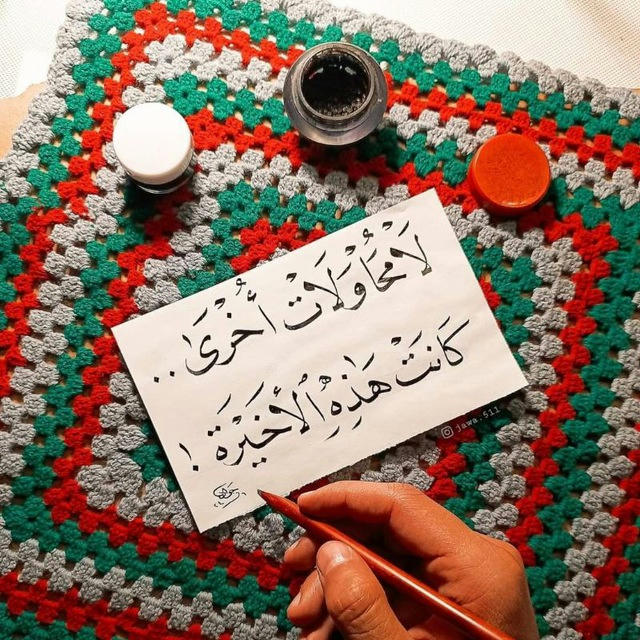 لَا مُحَاوَلَاتٌ أُخْرَىٰ..
كَانَتْ هَذِهِ الْأَخِيرَة !
jawa.511